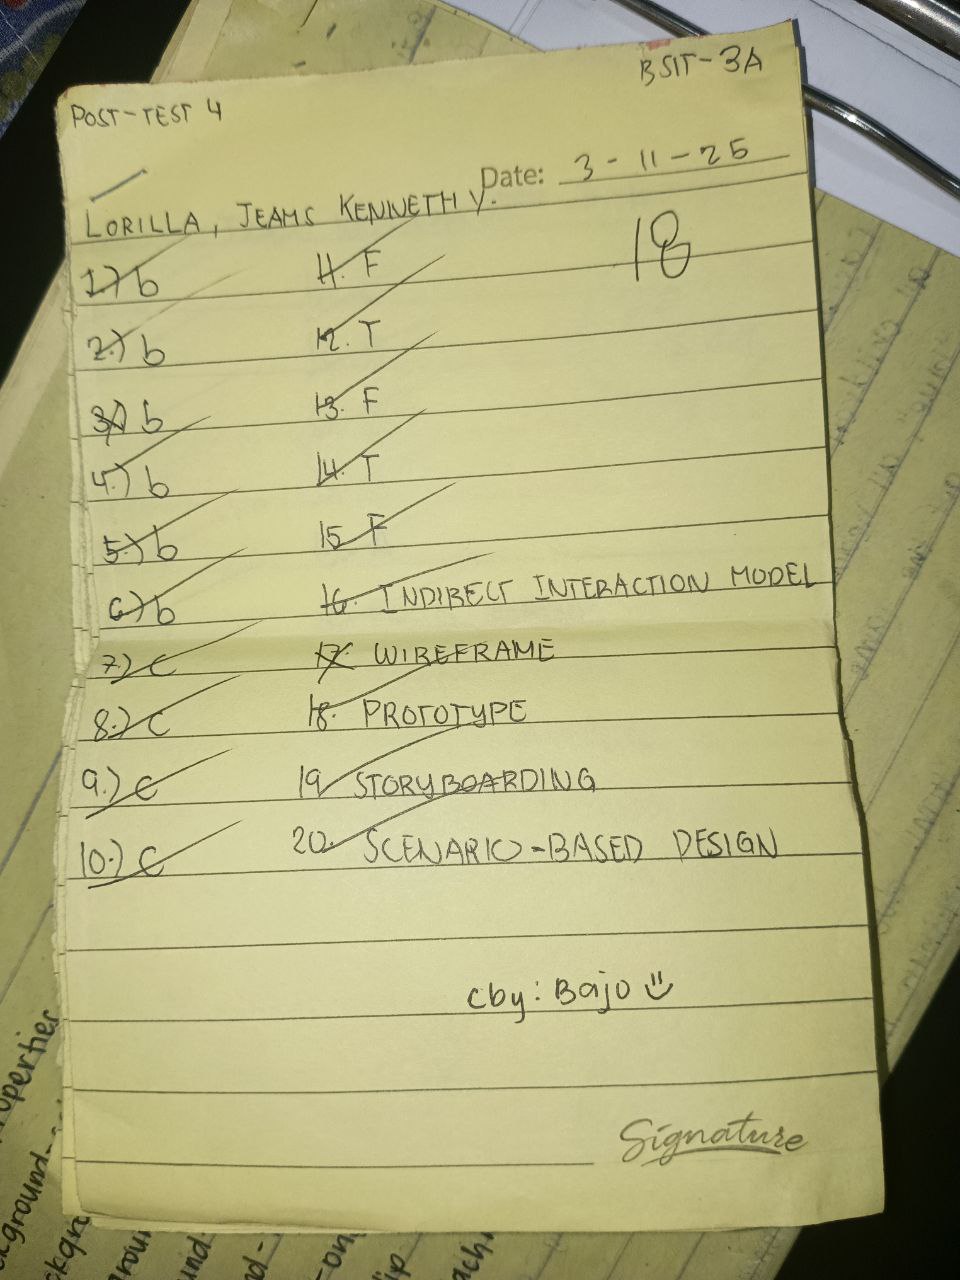 POST-TEST 4
BSIT-3A
Date: 3-11-25
LORILLA, JEAMS KENNETH Y.
18
1.) b
2.) b
3.) b
4.) b
5.) b
6.) b
7.) C
8.) C
9.) C
10.) C
11. F
12. T
13. F
14. T
15. F
16. INDIRECT INTERACTION MODEL
17. WIREFRAME
18. PROTOTYPE
19. STORYBOARDING
20. SCENARIO-BASED DESIGN
cby: Bajo
Signature
operties